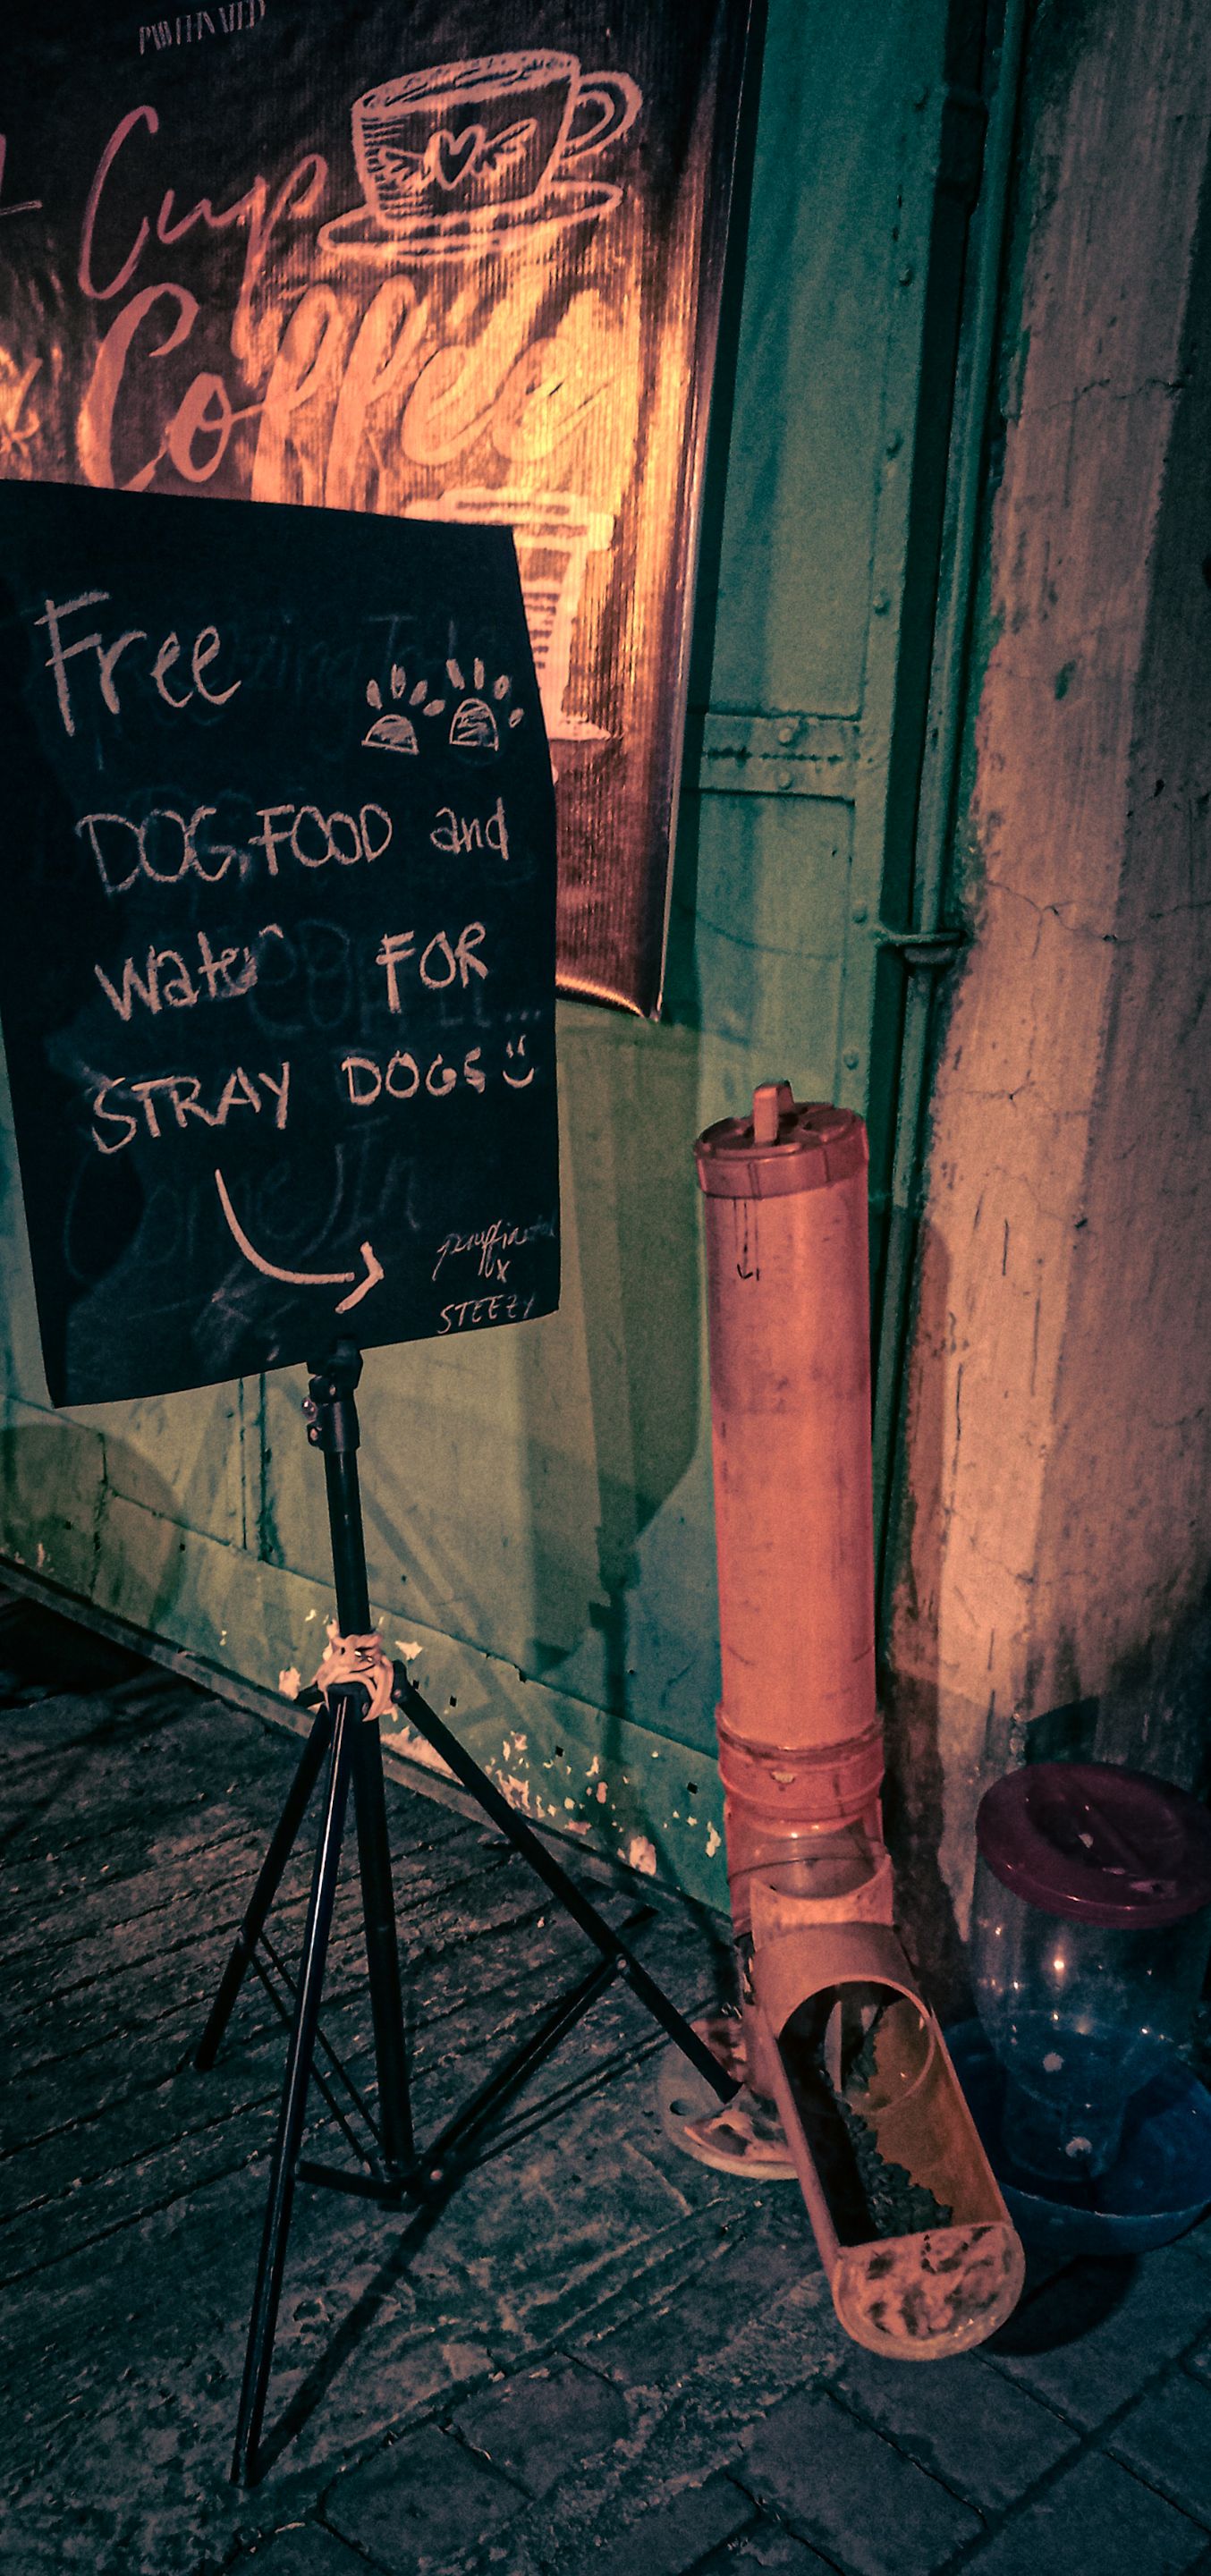 Cup
Coffee
Free
DOG FOOD and
water FOR
STRAY DOGS
x
STEEZY